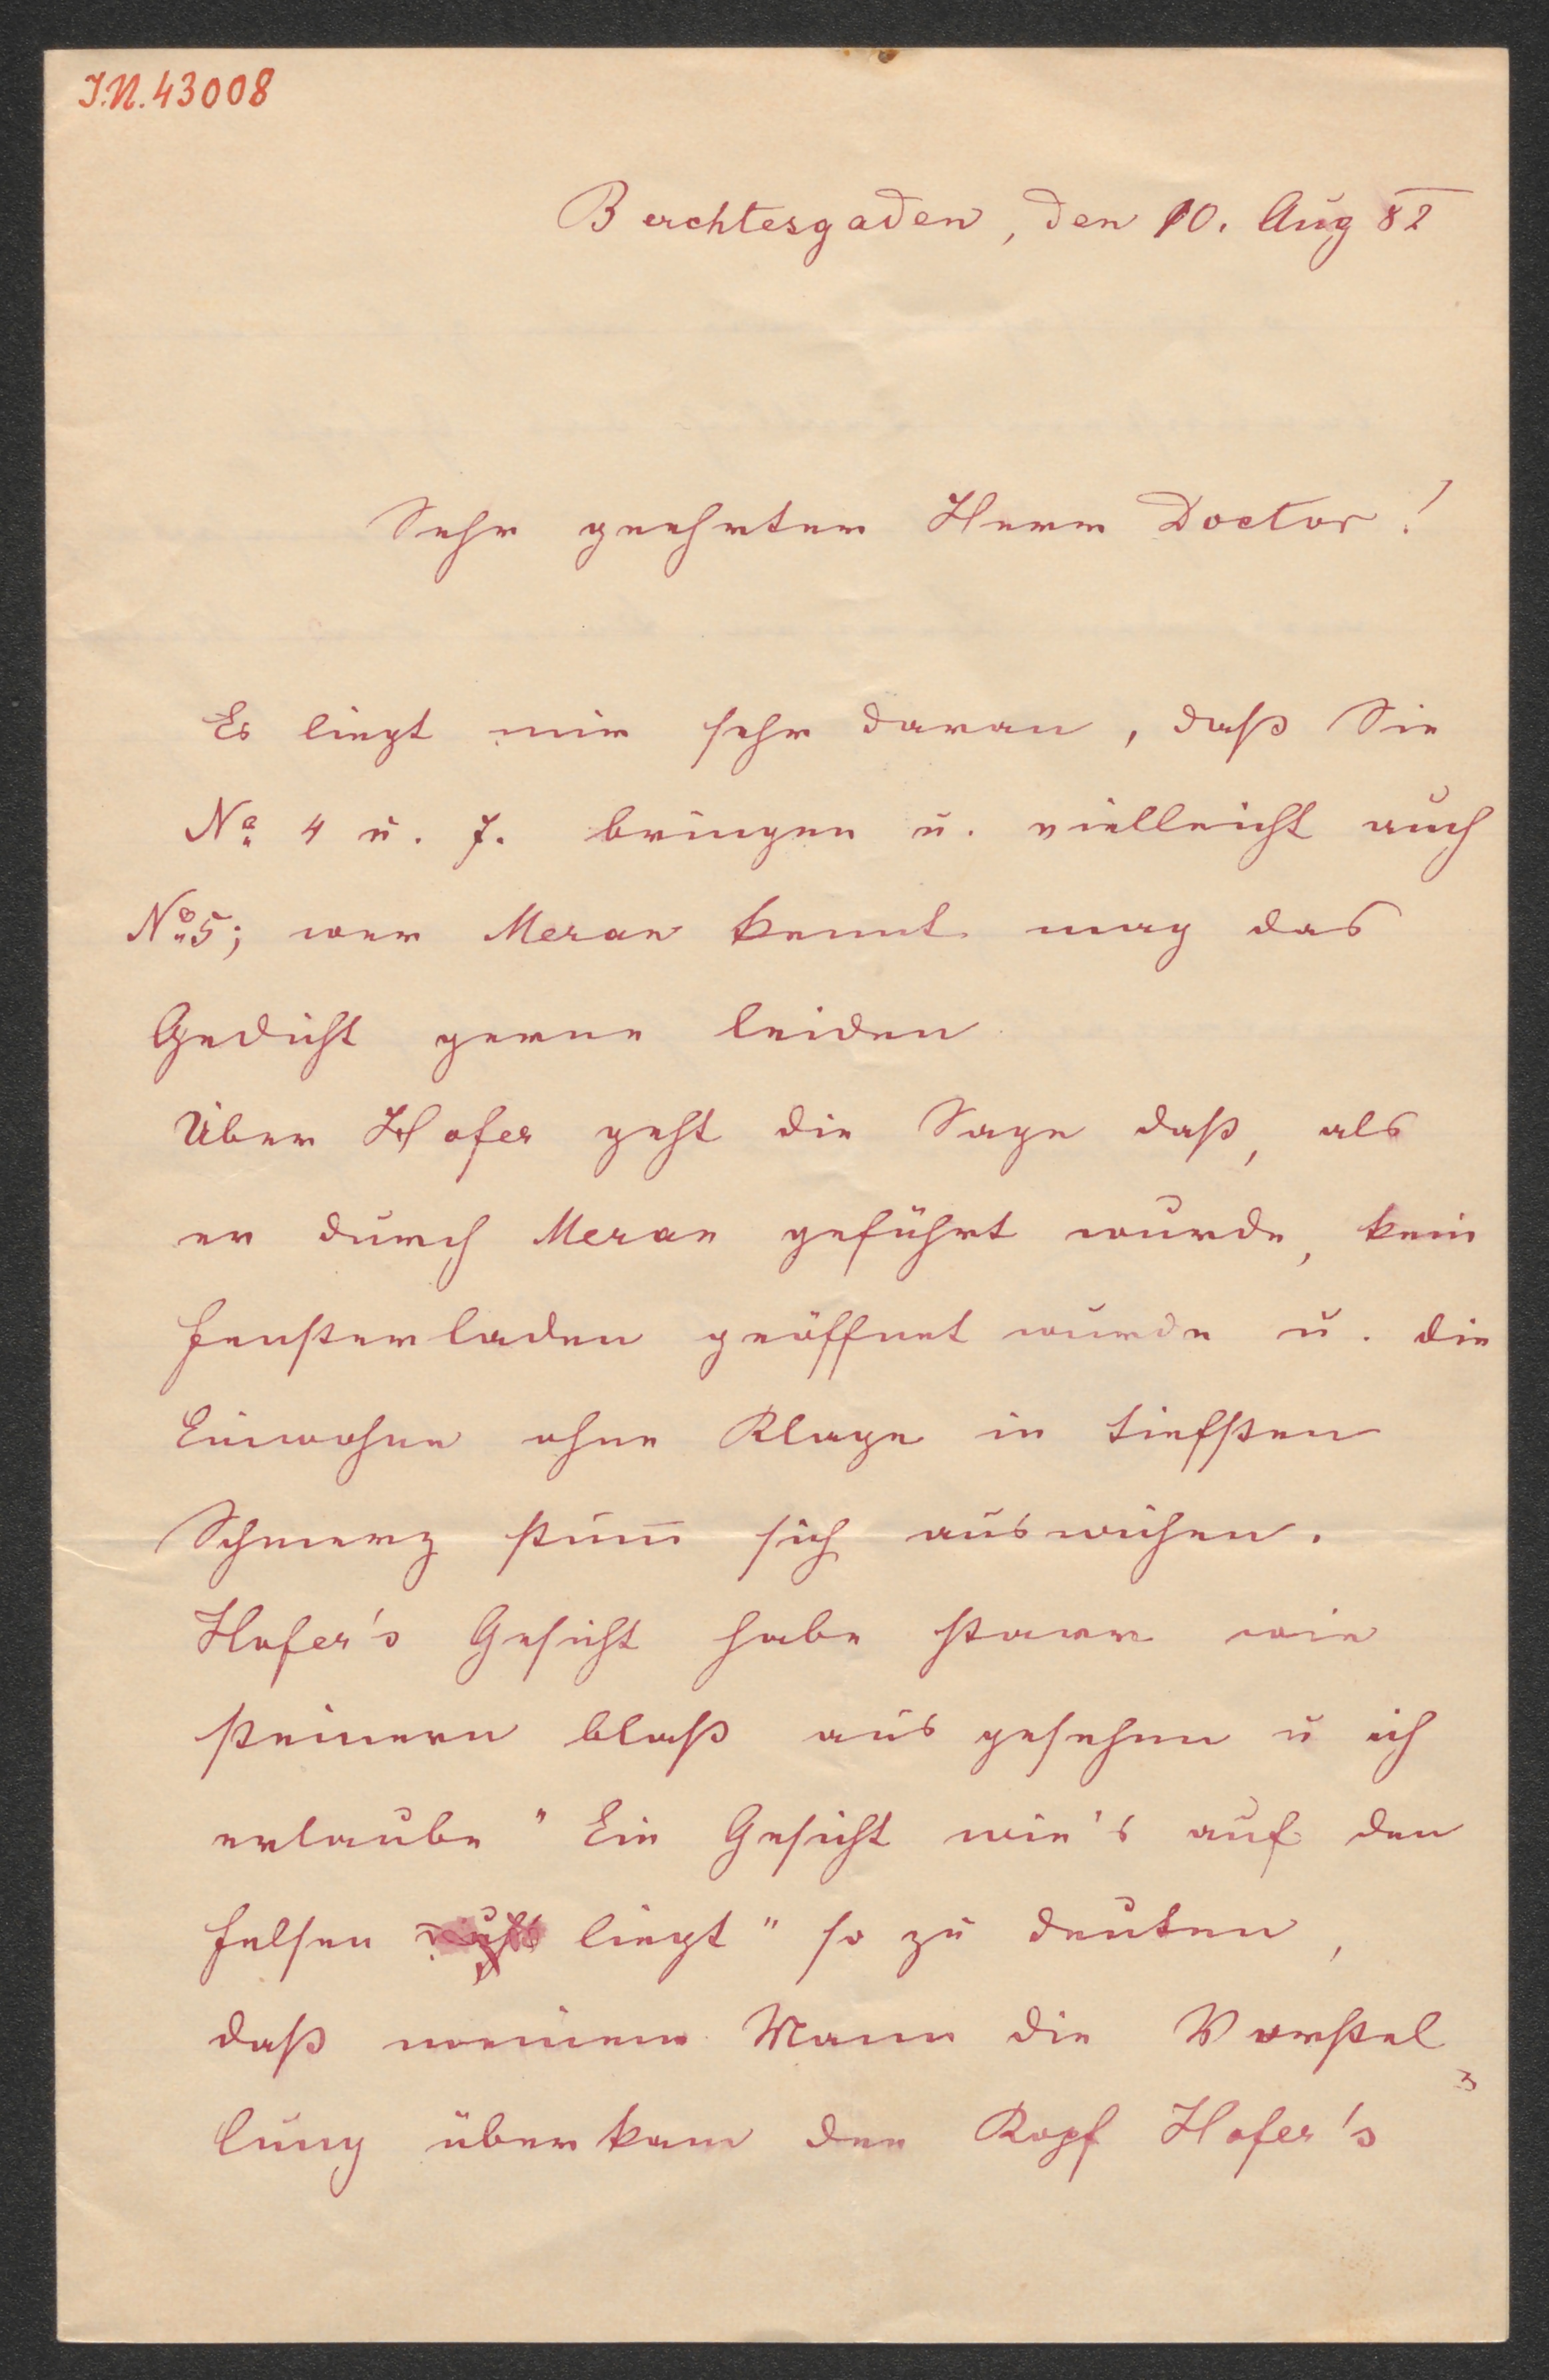 J.N. 43008
Berchtesgaden, den 10. Aug 82
Sehr geehrter Herr Doctor!
Es liegt mir sehr daran, daß Sie
No 4 u. 7. bringen u. vielleicht auch
No 5; wer Meran kennt mag das
Gedicht gerne leiden
Über Hofer geht die Sage daß, als
er durch Meran geführt wurde, kein
Fensterladen geöffnet wurde u. die
Einwohne ohne Klage in tiefsten
Schmerz stum̅ sich auswichen.
Hofer's Gesicht habe starr wie
steinern blaß aus gesehen u ich
erlaube "Ein Gesicht wie's auf den
Felsen liegt" so zu deuten,
daß meinem Mann die Vorstel
lung überkam den Kopf Hofer's